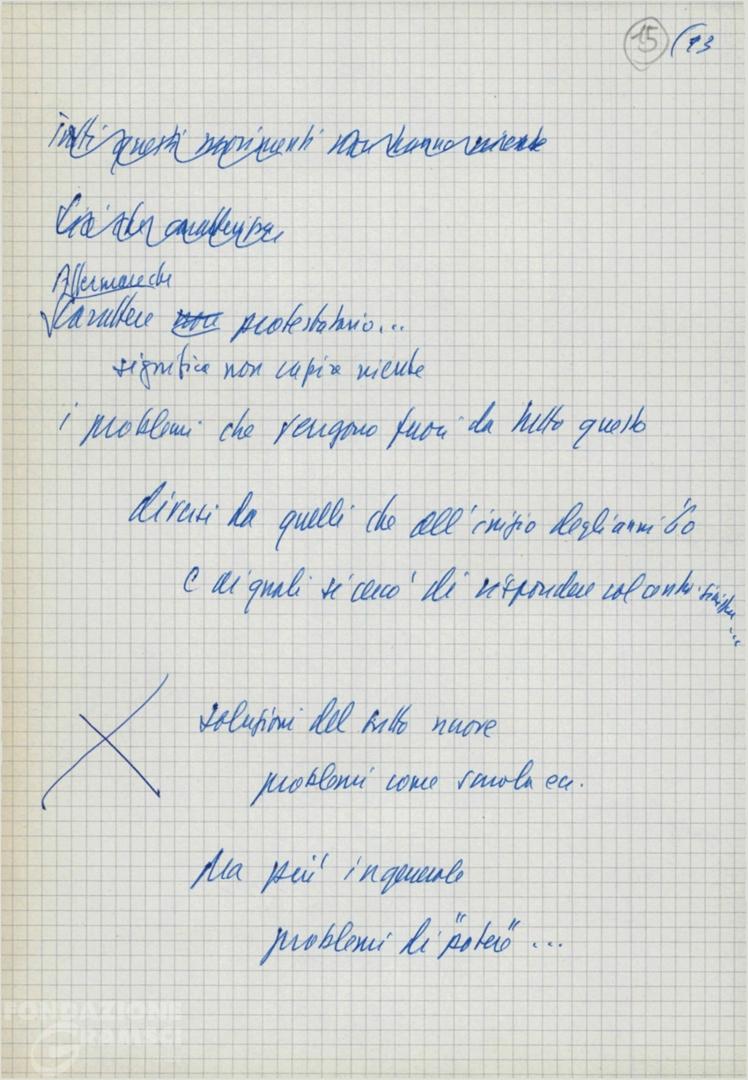 15 (13
Tutti questi movimenti non hanno niente
Ciò che caratterizza
Affermare che
Carattere non protestatario...
significa non capire niente
i problemi che vengono fuori da tutto questo
diversi da quelli che all'inizio degli anni 60
e ai quali si cercò di rispondere col centro-sinistra...
soluzioni del tutto nuove
problemi come scuola ecc.
Ma più in generale
problemi di "potere" ...
FONDAZIONE
GRAMSCI